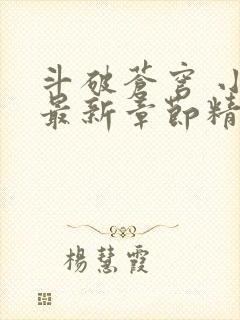 斗破苍穹 小
最新章节精
杨慧霞